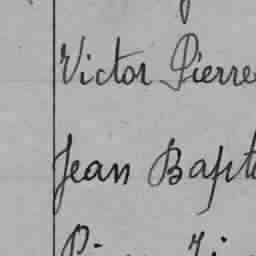 Victor Pierre
Jean Bapt